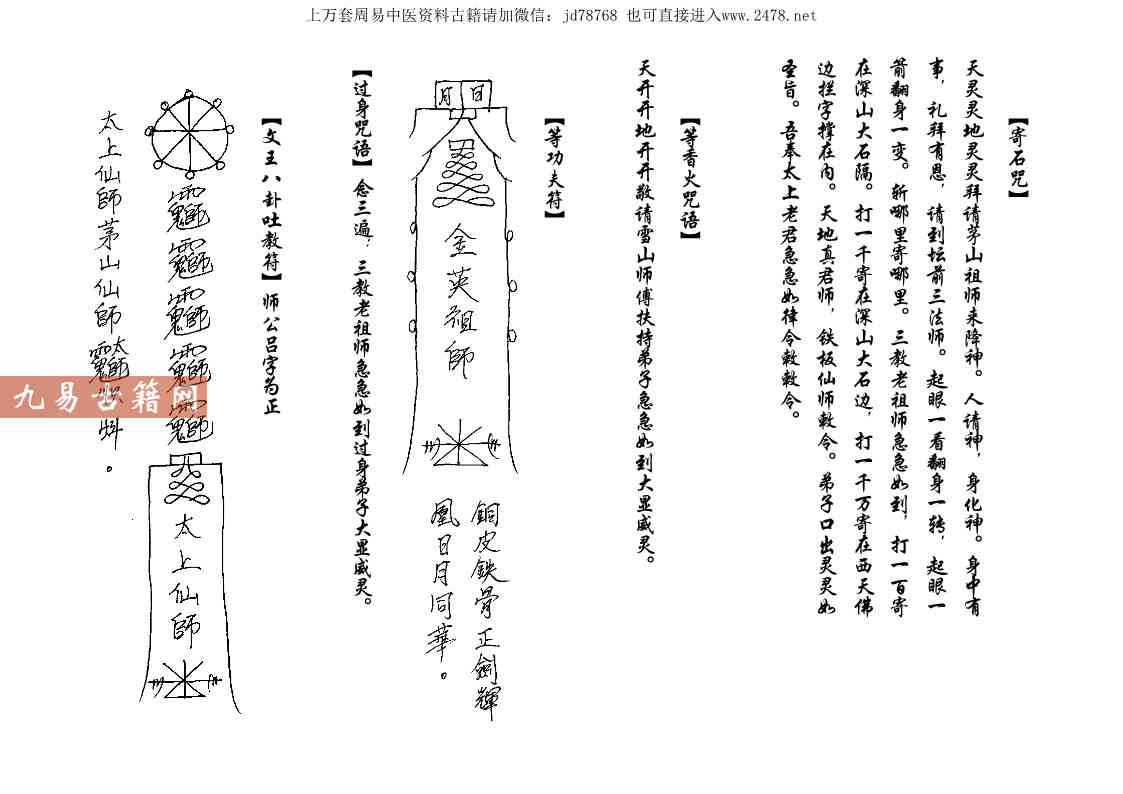 上万套周易中医资料古籍请加微信：jd78768 也可直接进入www.2478.net
【寄石咒】
天灵灵地灵灵拜请茅山祖师来降神。人请神，身化神。身中有
事，礼拜有恩，请到坛前三法师。起眼一看翻身一转，起眼一
箭翻身一变。斩哪里寄哪里。三教老祖师急急如到，打一百寄
在深山大石隔。打一千寄在深山大石边，打一千万寄在西天佛
边拦字撑在内。天地真君师，铁板仙师敕令。弟子口出灵灵如
圣旨。吾奉太上老君急急如律令敕敕令。
【等香火咒语】
天开开地开开敬请雪山师傅扶持弟子急急如到大显威灵。
【等功夫符】
日
月
金英祖師
銅皮鉄骨正劍輝
凰日月同華。
【过身咒语】念三遍，三教老祖师急急如到过身弟子大显威灵。
【文王八卦吐教符】师公吕字为正
太上仙師
太上仙師茅山仙師
九易古籍网